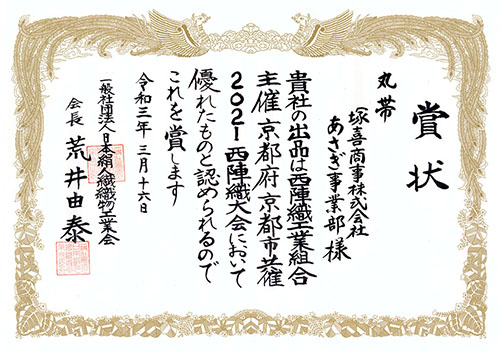 賞状
丸帯
塚喜商事株式会社
あさぎ事業部様
貴社の出品は西陣織工業組合
主催京都府京都市共催
2021西陣織大会において
優れたものと認められるので
これを賞します
令和三年三月十六日
一般社団法人日本絹人繊織物工業会
会長 荒井由泰